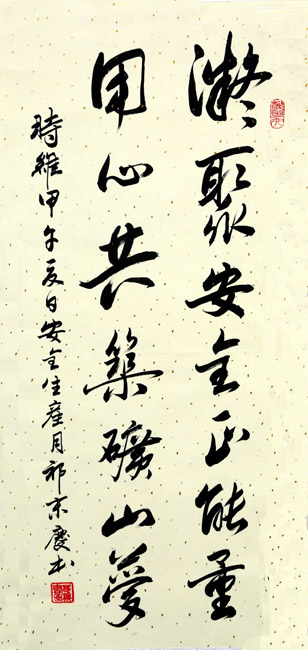 凝聚安全正能量
用心共築礦山夢
時維甲午夏日安全生產月祁京慶书